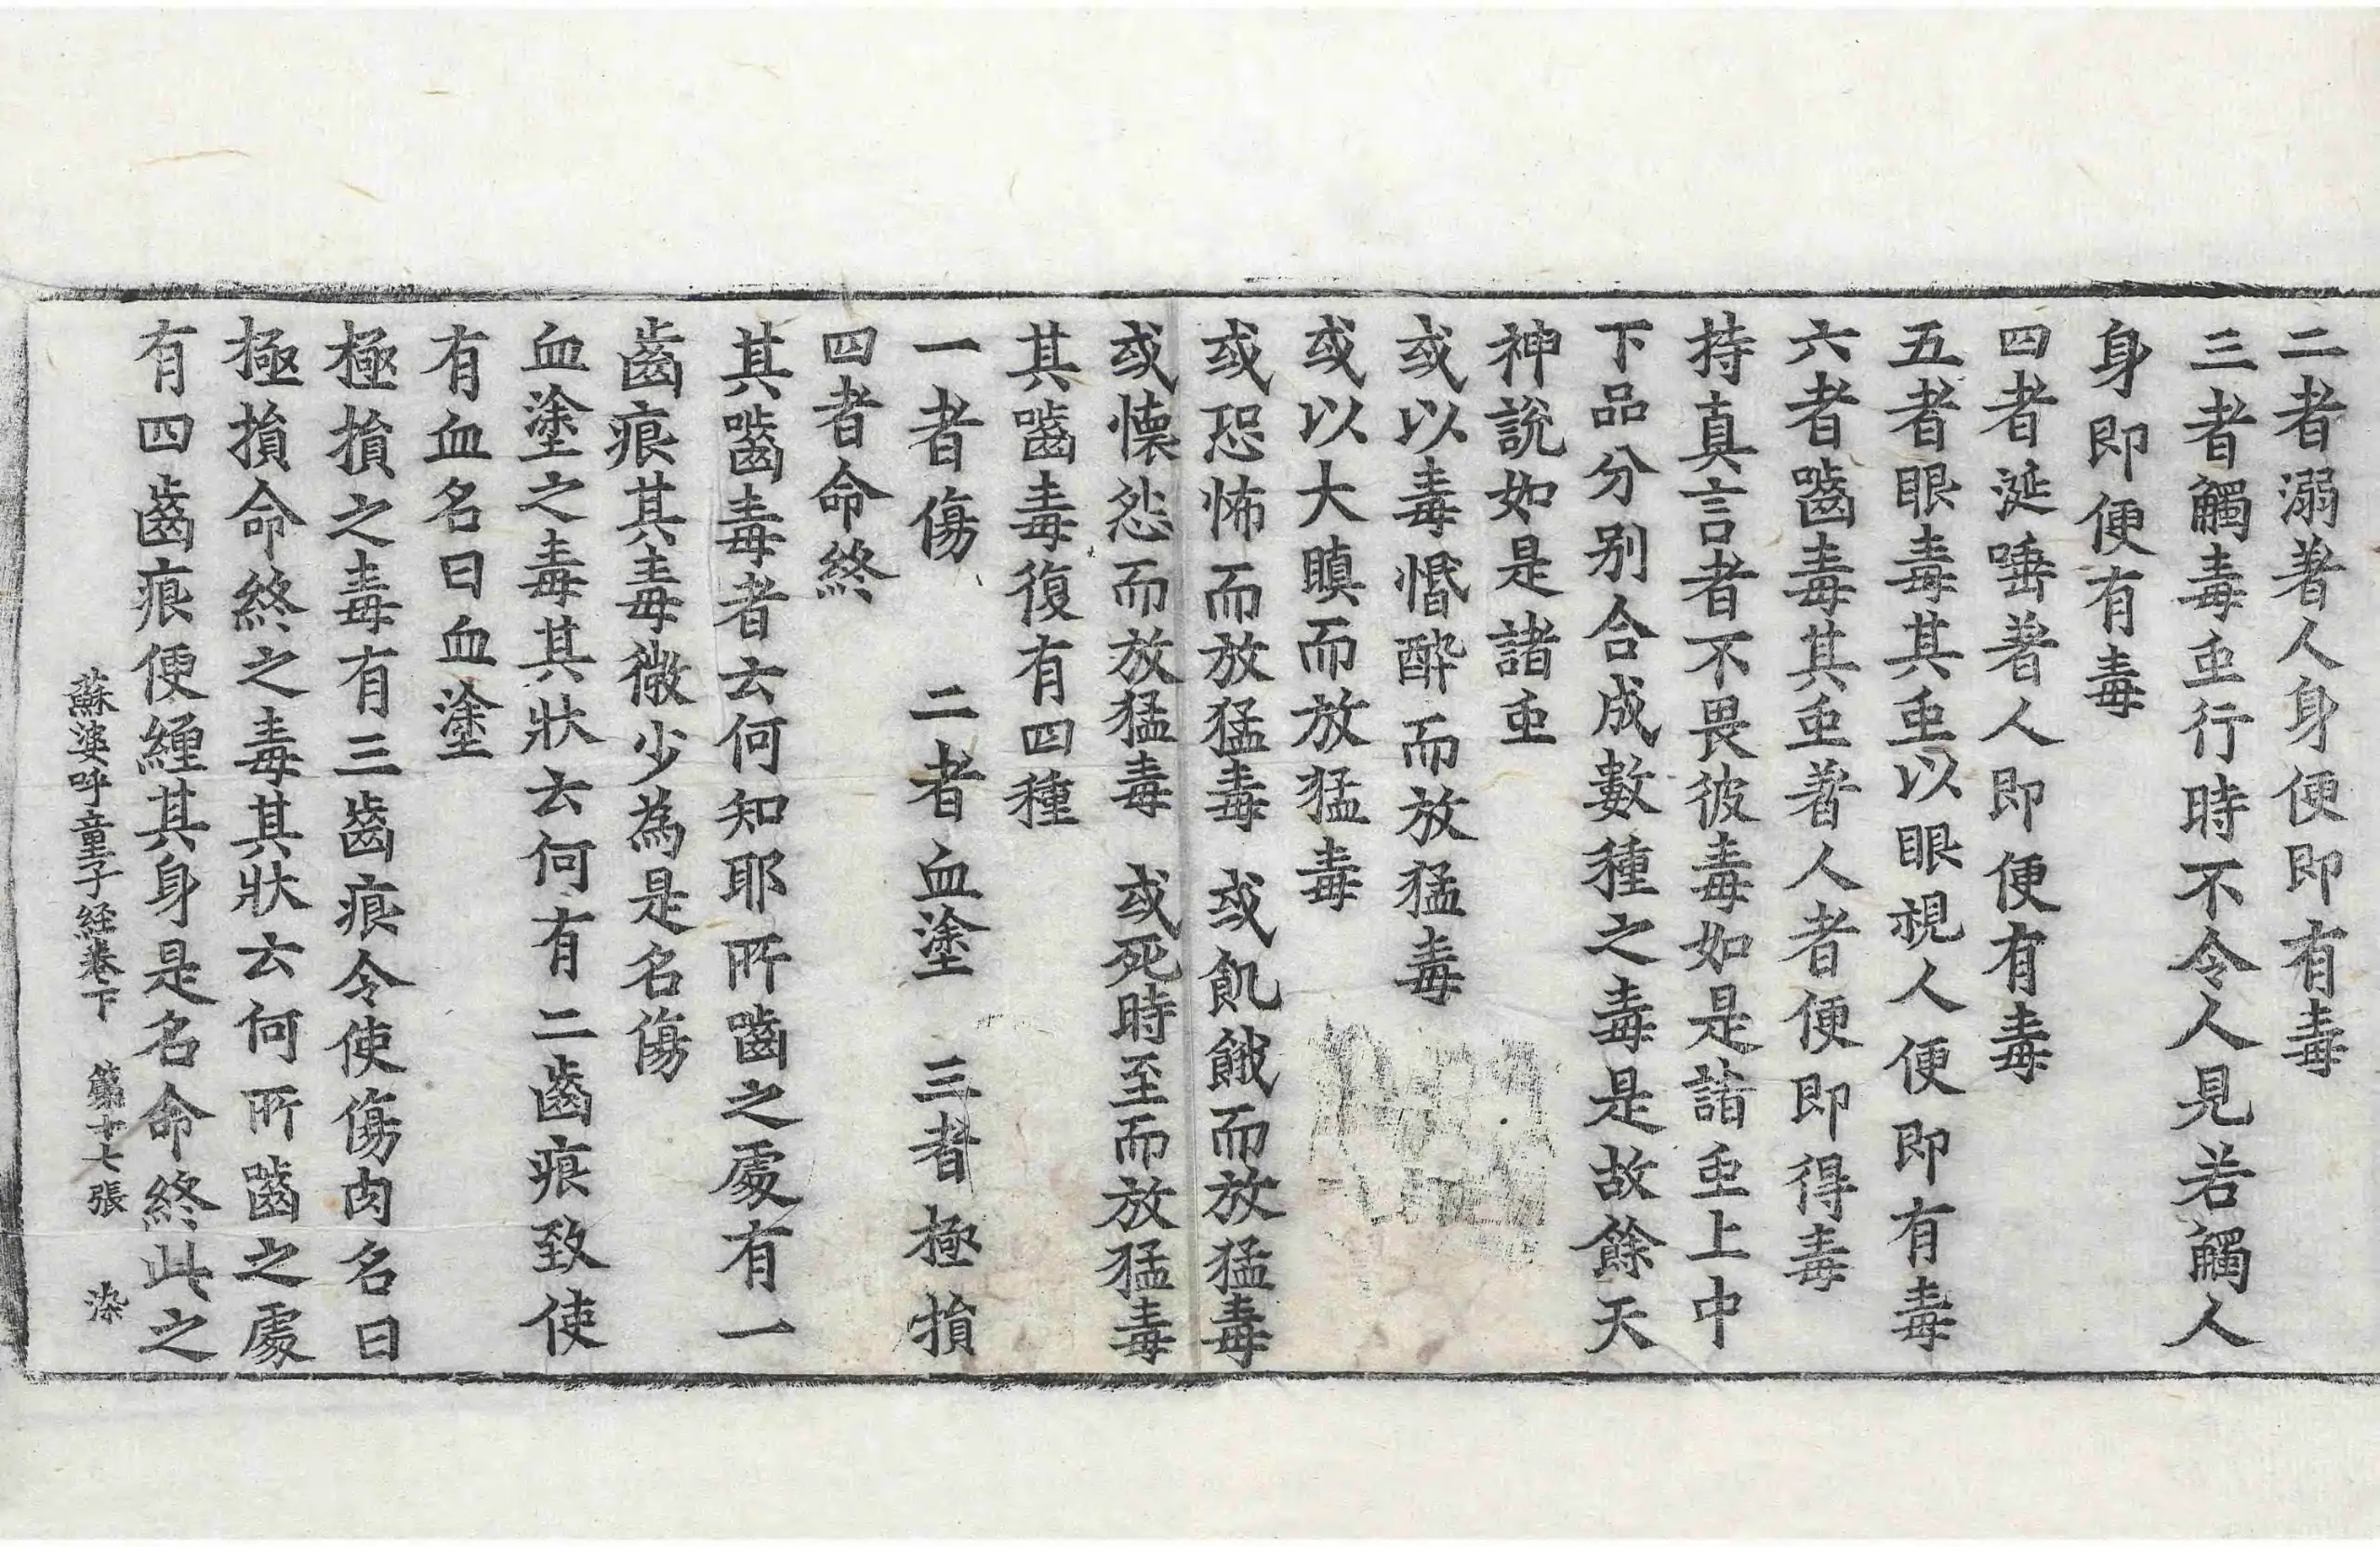 二者溺著人身便即有毒
三者觸毒䖝行時不令人見若觸人
身即便有毒
四者涎唾著人即便有毒
五者眼毒其䖝以眼視人便即有毒
六者嚙毒其䖝著人者便即得毒
持真言者不畏彼毒如是諸䖝上中
下品分别合成數種之毒是故餘天
神說如是諸䖝
或以毒惛醉而放猛毒
或以大瞋而放猛毒
或恐怖而放猛毒 或飢餓而放猛毒
或懷怨而放猛毒 或死時至而放猛毒
其嚙毒復有四種
一者傷 二者血塗 三者極損
四者命終
其嚙毒者云何知耶所嚙之處有一
齒痕其毒微少為是名傷
血塗之毒其狀云何有二齒痕致使
有血名曰血塗
極損之毒有三齒痕令使傷肉名曰
極損命終之毒其狀云何所嚙之處
有四齒痕便纏其身是名命終此之
蘇婆呼童子経卷下 第十七張 染